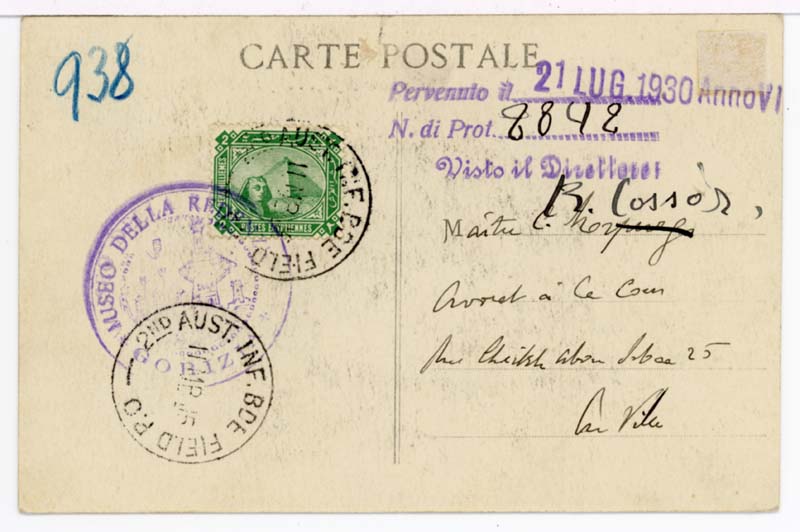 938
CARTE POSTALE
Pervenuto il 21 LUG. 1930 Anno VI
N. di Prot. 8842
Visto il Direttore:
MUSEO DELLA
GORIZ
POSTES EGYPTIENNES
2
AUST. INF. BDE FIELD
2ND AUST. INF. BDE FIELD P.O
R. Cossàr,
Maître C.
Avocat à la Cour
Rue Cheikh abou Sebaa 25
En Ville